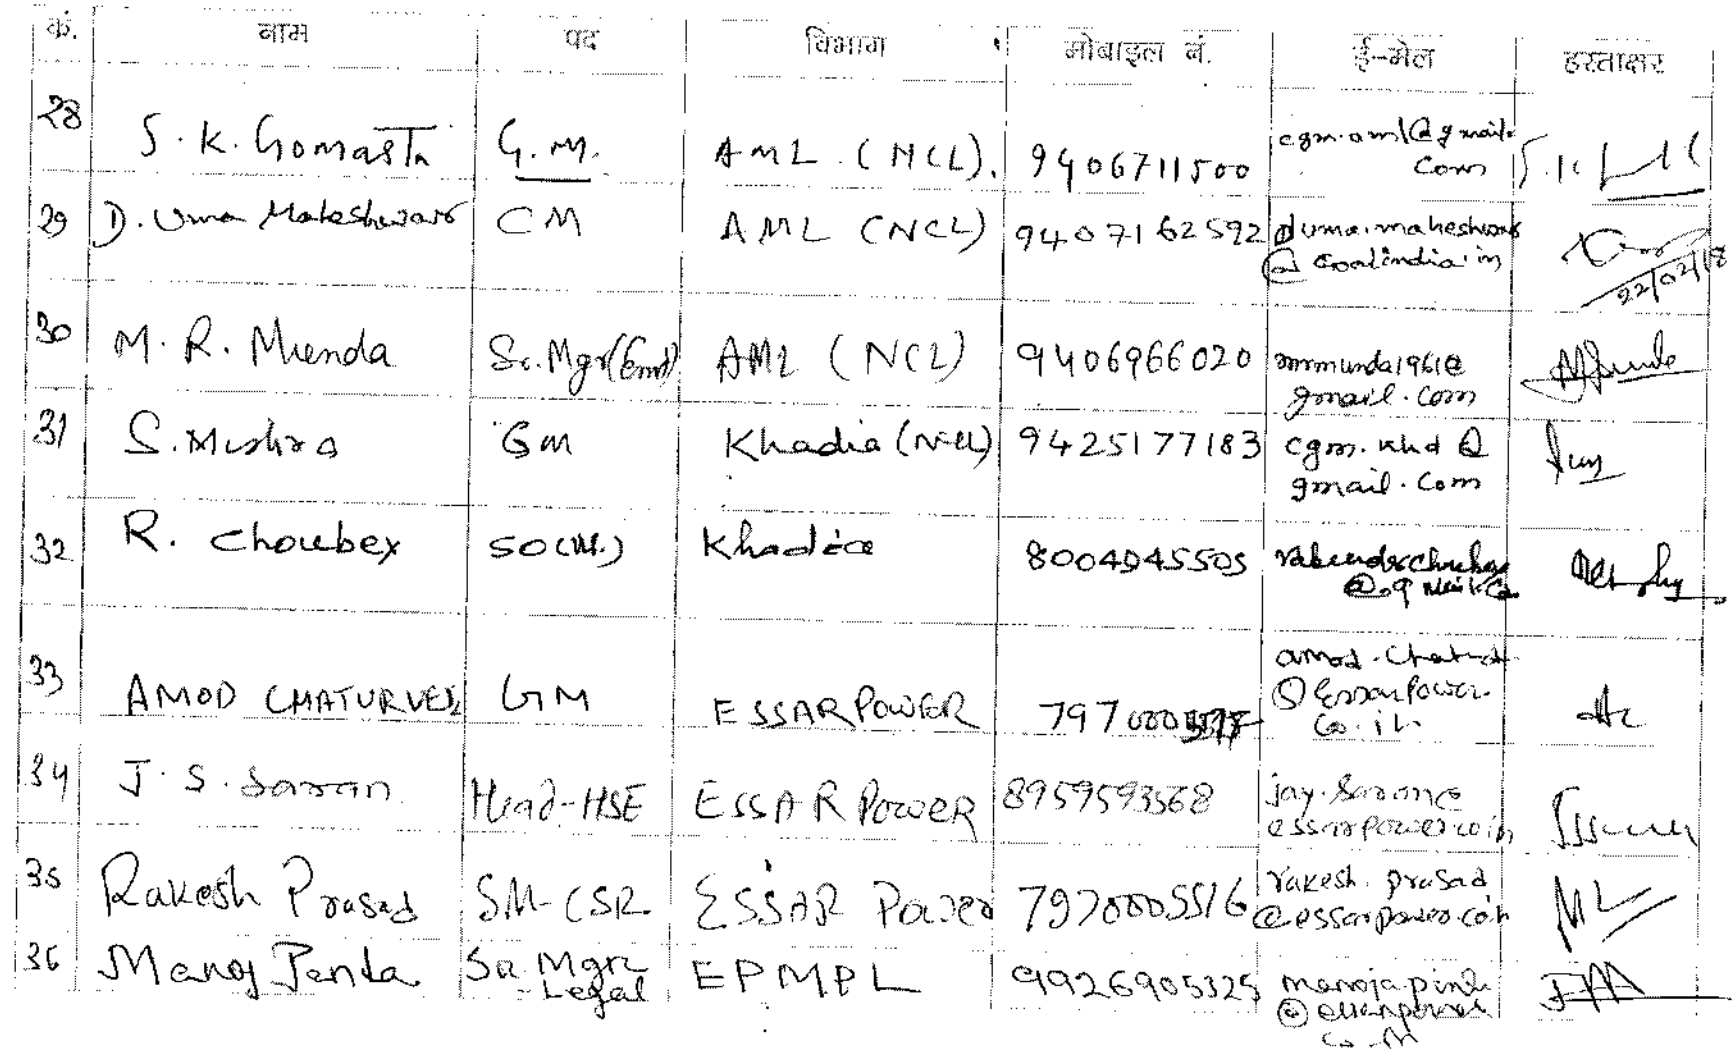 कं. नाम पद विभाग मोबाइल नं. ई-मेल हस्ताक्षर
28 S. K. Gomasta G.M. AML (NCL). 9406711500 cgm.aml@gmail.
com
29 D. Uma Maheshwar CM AML (NCL) 9407162592 duma.maheshwar
@coalindia.in
22/02/18
30 M. R. Munda Sr. Mgr(Env) AML (NCL) 9406966020 mrmunda1961@
gmail.com
31 S. Mishra GM Khadia (NCL) 9425177183 cgm.khd@
gmail.com
32 R. Choubey SO(M.) Khadia 8004945505
33 AMOD CHATURVEDI GM ESSAR POWER 797000
@Essarpower.
co.in
34 J. S. Saran Head-HSE ESSAR Power 8959593568 jay.saran@
essarpower.co.in
35 Rakesh Prasad SM-CSR ESSAR Power 7970005516 rakesh.prasad
@essarpower.co.in
36 Manoj Panda Sr. Mgr EPMPL 9926905325
-Legal